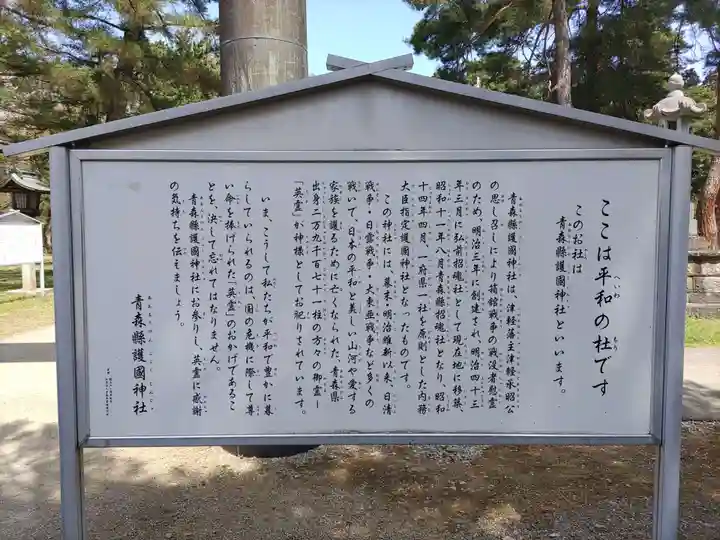 ここは平和の杜です
このお社は
青森縣護國神社といいます。
青森縣護國神社は、津軽藩主津軽承昭公
の思し召しにより箱館戦争の戦没者慰霊
のため、明治三年に創建され、明治四十三
年三月に弘前招魂社として現在地に移築
昭和十一年八月青森縣招魂社となり、昭和
十四年四月、一府県一社を原則とした内務
大臣指定護國神社となったものです。
この神社には、幕末・明治維新以来、日清
戦争・日露戦争・大東亜戦争など多くの
戦いで、日本の平和と美しい山河や愛する
家族を護るために亡くなられた、青森縣
出身二万九千百七十一柱の方々の御霊ー
「英霊」が神様としてお祀りされています。
いま、こうして私たちが平和で豊かに暮
らしていられるのは、国の危機に際して尊
い命を捧げられた「英霊」のおかげであるこ
とを、決して忘れてはなりません。
青森縣護國神社にお参りし、英霊に感謝
の気持ちを伝えましょう。
青森縣護國神社